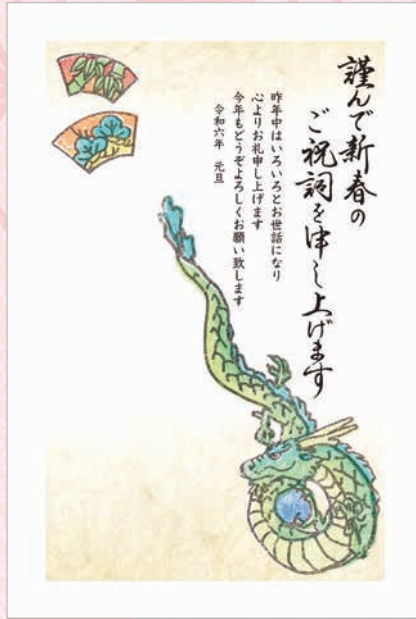 謹んで新春の
ご祝詞を申し上げます
昨年中はいろいろとお世話になり
心よりお礼申し上げます
今年もどうぞよろしくお願い致します
令和六年　元旦